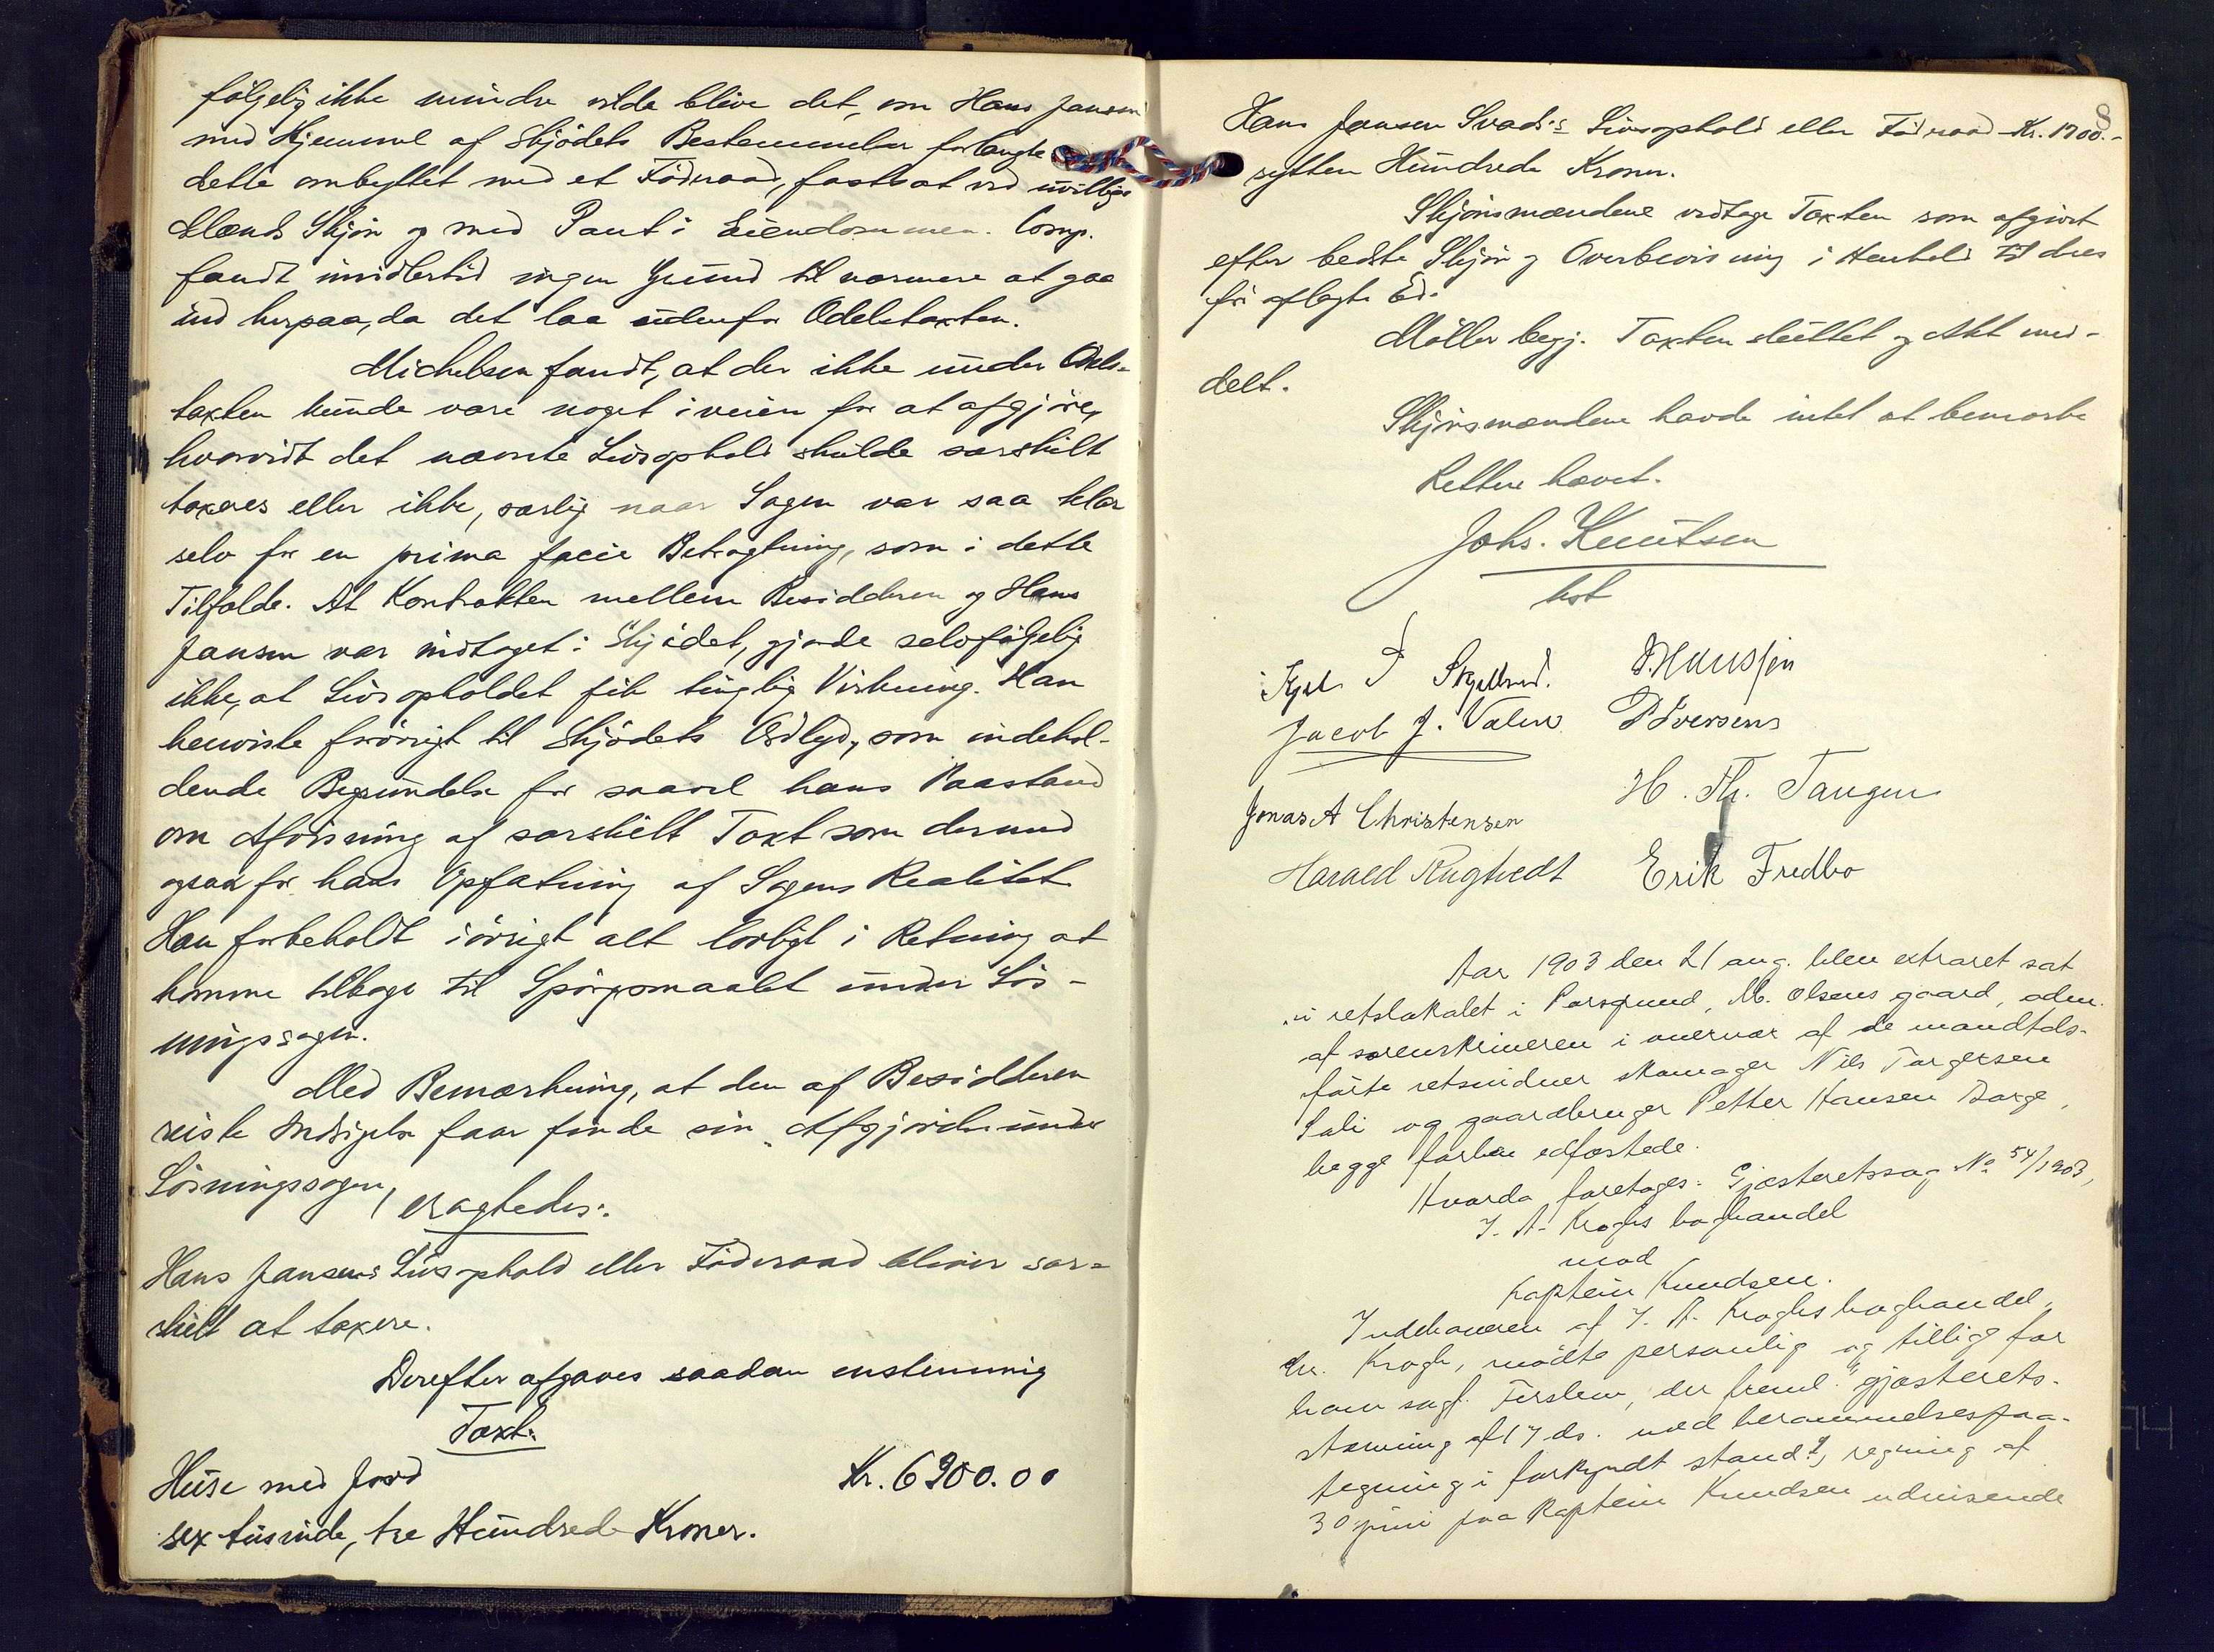 følgelig ikke mindre vilde blive det, om Hans Jansen
med Hjemmel af Skjødets Bestemmelser forlangte
dette ombyttet med et Föderaad, fastsat ved uvillige
Mænds Skjøn og med Pant i Eiendommen. Comp.
fandt imidlertid ingen Grund til nærmere at gaa
ind herpaa, da det laa udenfor Odelstaxten.
Michelsen fandt, at der ikke under Odels-
taxten kunde være noget iveien for at afgjøre,
hvorvidt det nævnte Livsophold skulde særskilt
taxeres eller ikke, særlig naar Sagen var saa klar
selv for en prima facie Betragtning, som i dette
Tilfælde. At Kontrakten mellem Besidderen og Hans
Jansen var indtaget i Skjødet, gjorde selvfølgelig
ikke, at Livsopholdet fik tinglig Virkning. Han
henviste forøvrigt til Skjødets Ordlyd, som indehol-
dende Begrundelse for saavel hans Paastand
om Afvisning af særskilt Taxt som dermed
ogsaa for hans Opfatning af Sagens Realitet
Han forbeholdt iøvrigt alt lovligt i Retning at
komme tilbage til Spørgsmaalet under Løs-
ningssagen.
Med Bemærkning, at den af Besidderen
reiste Indsigelse faar finde sin Afgjørelse under
Løsningssagen,
eragtedes:
Hans Jansens Livsophold eller Föderaad bliver sær-
skilt at taxere.
Derefter afgaves saadan enstemmig
Taxt:
Huse med Jord Kr. 6300.00
sex tusinde, tre Hundrede Kroner.
8
Hans Jansen Svads Livsophold eller Föderaad Kr. 1700.-
sytten Hundrede Kroner.
Skjønsmændene vedtoge Taxten som afgivet
efter bedste Skjøn og Overbevisning i Henhold til deres
før aflagte Ed.
Møller begj. Taxten sluttet og Akt med-
delt.
Skjønsmændene havde intet at bemærke
Retten hævet.
Johs. Knutsen
kst
P
Hanssen
Jacob J. Valen P Iversens
H. Th. Tangen
Jonas A Christensen
Harald Rugtvedt Erik Fredbo
Aar 1903 den 21 aug. blev extraret sat
i retslokalet i Porsgrund, M. Olsens gaard, adm.
af sorenskriveren i overvær af de mandtals-
førte retsvidner skomager Nils Torgersen
og gaardbruger Petter Hansen Borge,
begge forhen edfæstede.
Hvorda foretages: Gjæsteretssag No 54/1903,
J. A. Kroghs boghandel
mod
kaptein Knudsen.
Indehaveren af J. A. Kroghs boghandel,
hr. Krogh, mødte personlig og tillige for
ham sagf. der freml. "gjæsterets-
stævning af 17 ds. med berammelsespaa-
tegning i forkyndt stand", regning af
30 juni paa kaptein Knudsen udvisende